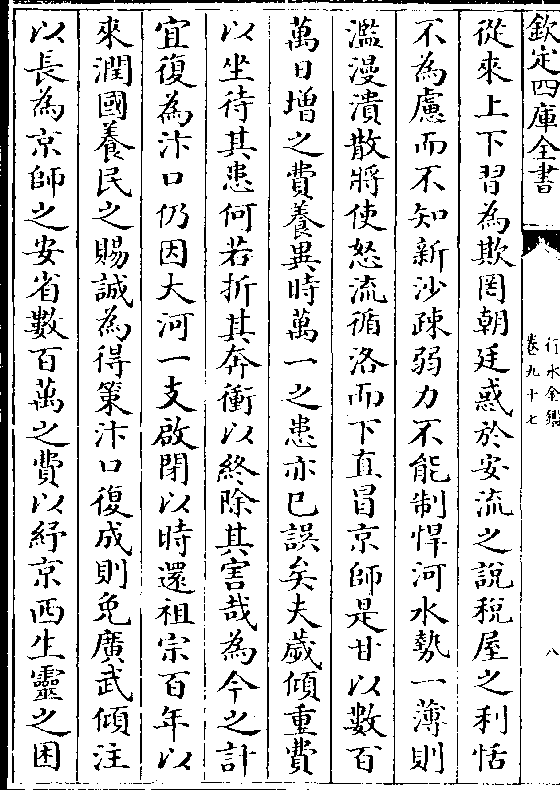 欽定四庫全書
行水金鑑
卷九十七
八
從來上下習為欺罔朝廷惑於安流之說稅屋之利恬
不為慮而不知新沙疎弱力不能制悍河水勢一薄則
濫漫潰散將使怒流循洛而下直冒京師是甘以數百
萬日增之費養異時萬一之患亦已誤矣夫歲傾重費
以坐待其患何若折其奔衝以終除其害哉為今之計
宜復為汴口仍因大河一支啟閉以時還祖宗百年以
來潤國養民之賜誠為得策汴口復成則免廣武傾注
以長為京師之安省數百萬之費以紓京西生靈之困